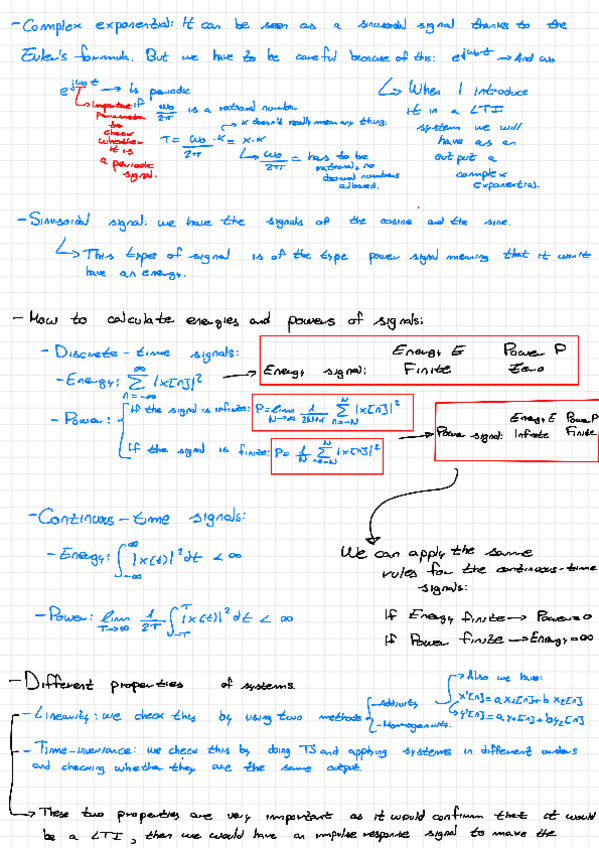 - Complex exponential: It can be seen as a sinusoidal signal thanks to the
Euler's formula. But we have to be careful because of this: e^jω₀t → And ω₀
e^jω₀t → Is periodic
if ω₀/2π is a rational number
Important
Parameter
to
check
whether
it is
a periodic
signal.
→ K doesn't really mean any thing.
T = ω₀/2π · K = x.x
↳ ω₀/2π = has to be
rational, no
decimal numbers
allowed.
↳ When I introduce
it in a LTI
system we will
have as an
output a
complex
exponential.
- Sinusoidal signal: we have the signals of the cosine and the sine.
↳ This type of signal is of the type power signal meaning that it won't
have an energy.
- How to calculate energies and powers of signals:
- Discrete-time signals:
- Energy: ∑ n=-∞ ∞ |x[n]|² →
Energy E Power P
Energy signal: Finite Zero
- Power:
If the signal is infinite: P = lim N→∞ 1/2N+1 ∑ n=-N N |x[n]|²
If the signal is finite: P = 1/N ∑ n=-N N |x[n]|²
→
Energy E Power P
Power signal: Infinite Finite
- Continuous-time signals:
- Energy: ∫ -∞ ∞ |x(t)|² dt < ∞
- Power: lim T→∞ 1/2T ∫ -T T |x(t)|² dt < ∞
We can apply the same
rules for the continuous-time
signals:
If Energy finite → Power=0
If Power finite → Energy=∞
- Different properties of systems.
- Linearity: we check this by using two methods
- Additivity
- Homogeneity.
→ Also we have:
x'[n] = a x₁[n] + b x₂[n]
↳ y'[n] = a y₁[n] + b y₂[n]
- Time-invariance: we check this by doing TS and applying systems in different orders
and checking whether they are the same output.
→ These two properties are very important as it would confirm that it would
be a LTI, then we would have an impulse response signal to make the